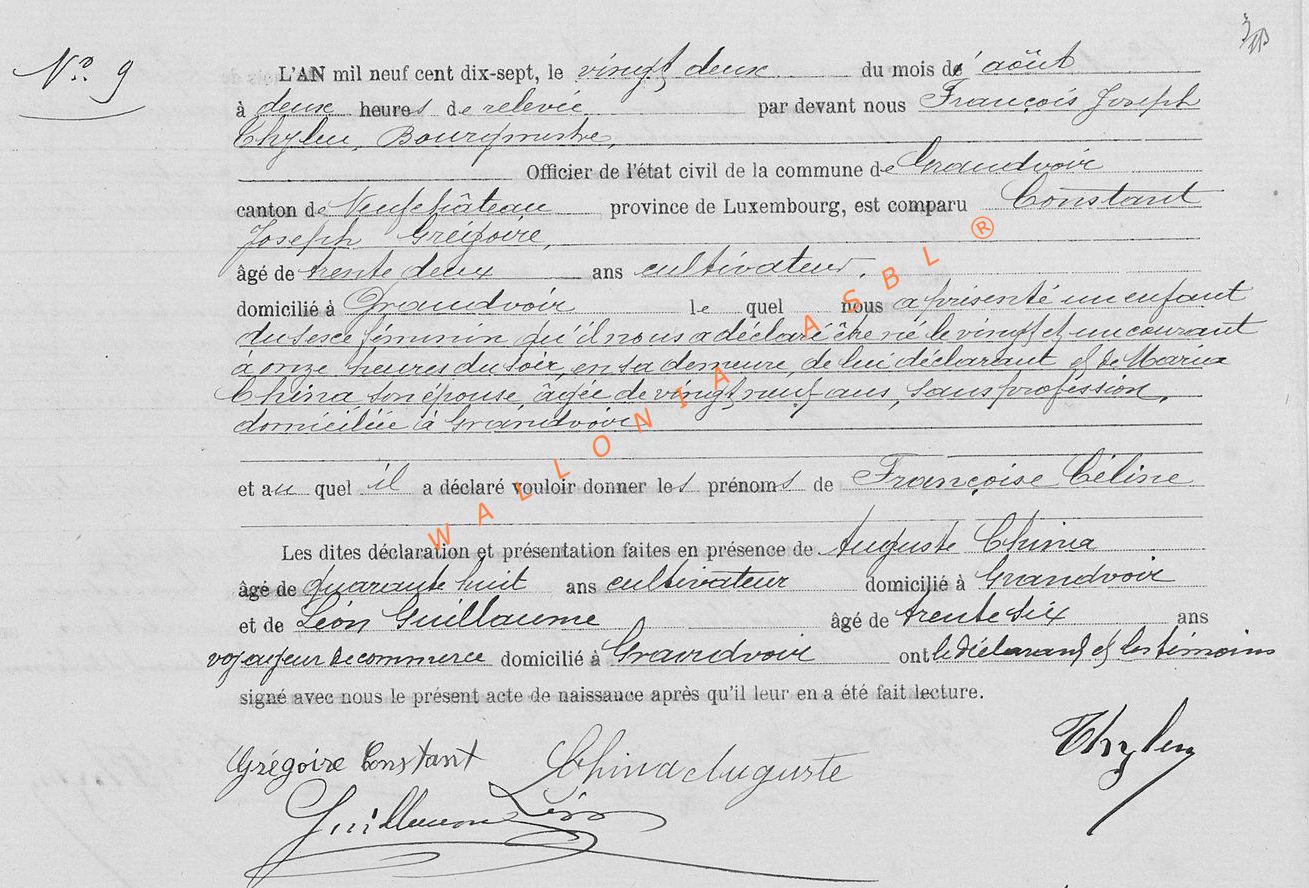 N° 9
L'AN mil neuf cent dix-sept, le vingt deux du mois d'août
à deux heures de relevée par devant nous François Joseph
Thylen, Bourgmestre,
Officier de l'état civil de la commune de Grandvoir
canton de Neufchâteau province de Luxembourg, est comparu Constant
Joseph Grégoire,
âgé de trente deux ans cultivateur,
domicilié à Grandvoir le quel nous a présenté un enfant
du sexe féminin qu'il nous a déclaré être né le vingt et un courant
à onze heures du soir, en sa demeure, de lui déclarant et de Maria
China son épouse, âgée de vingt neuf ans, sans profession,
domiciliée à Grandvoir
et au quel il a déclaré vouloir donner les prénoms de Françoise Céline
Les dites déclaration et présentation faites en présence de Auguste China
âgé de quarante huit ans cultivateur domicilié à Grandvoir
et de Léon Guillaume âgé de trente six ans
voyageur de commerce domicilié à Grandvoir ont le déclarant et les témoins
signé avec nous le présent acte de naissance après qu'il leur en a été fait lecture.
Grégoire Constant China Auguste Thylen
Guillaume Léon
WALLONIA ASBL ®